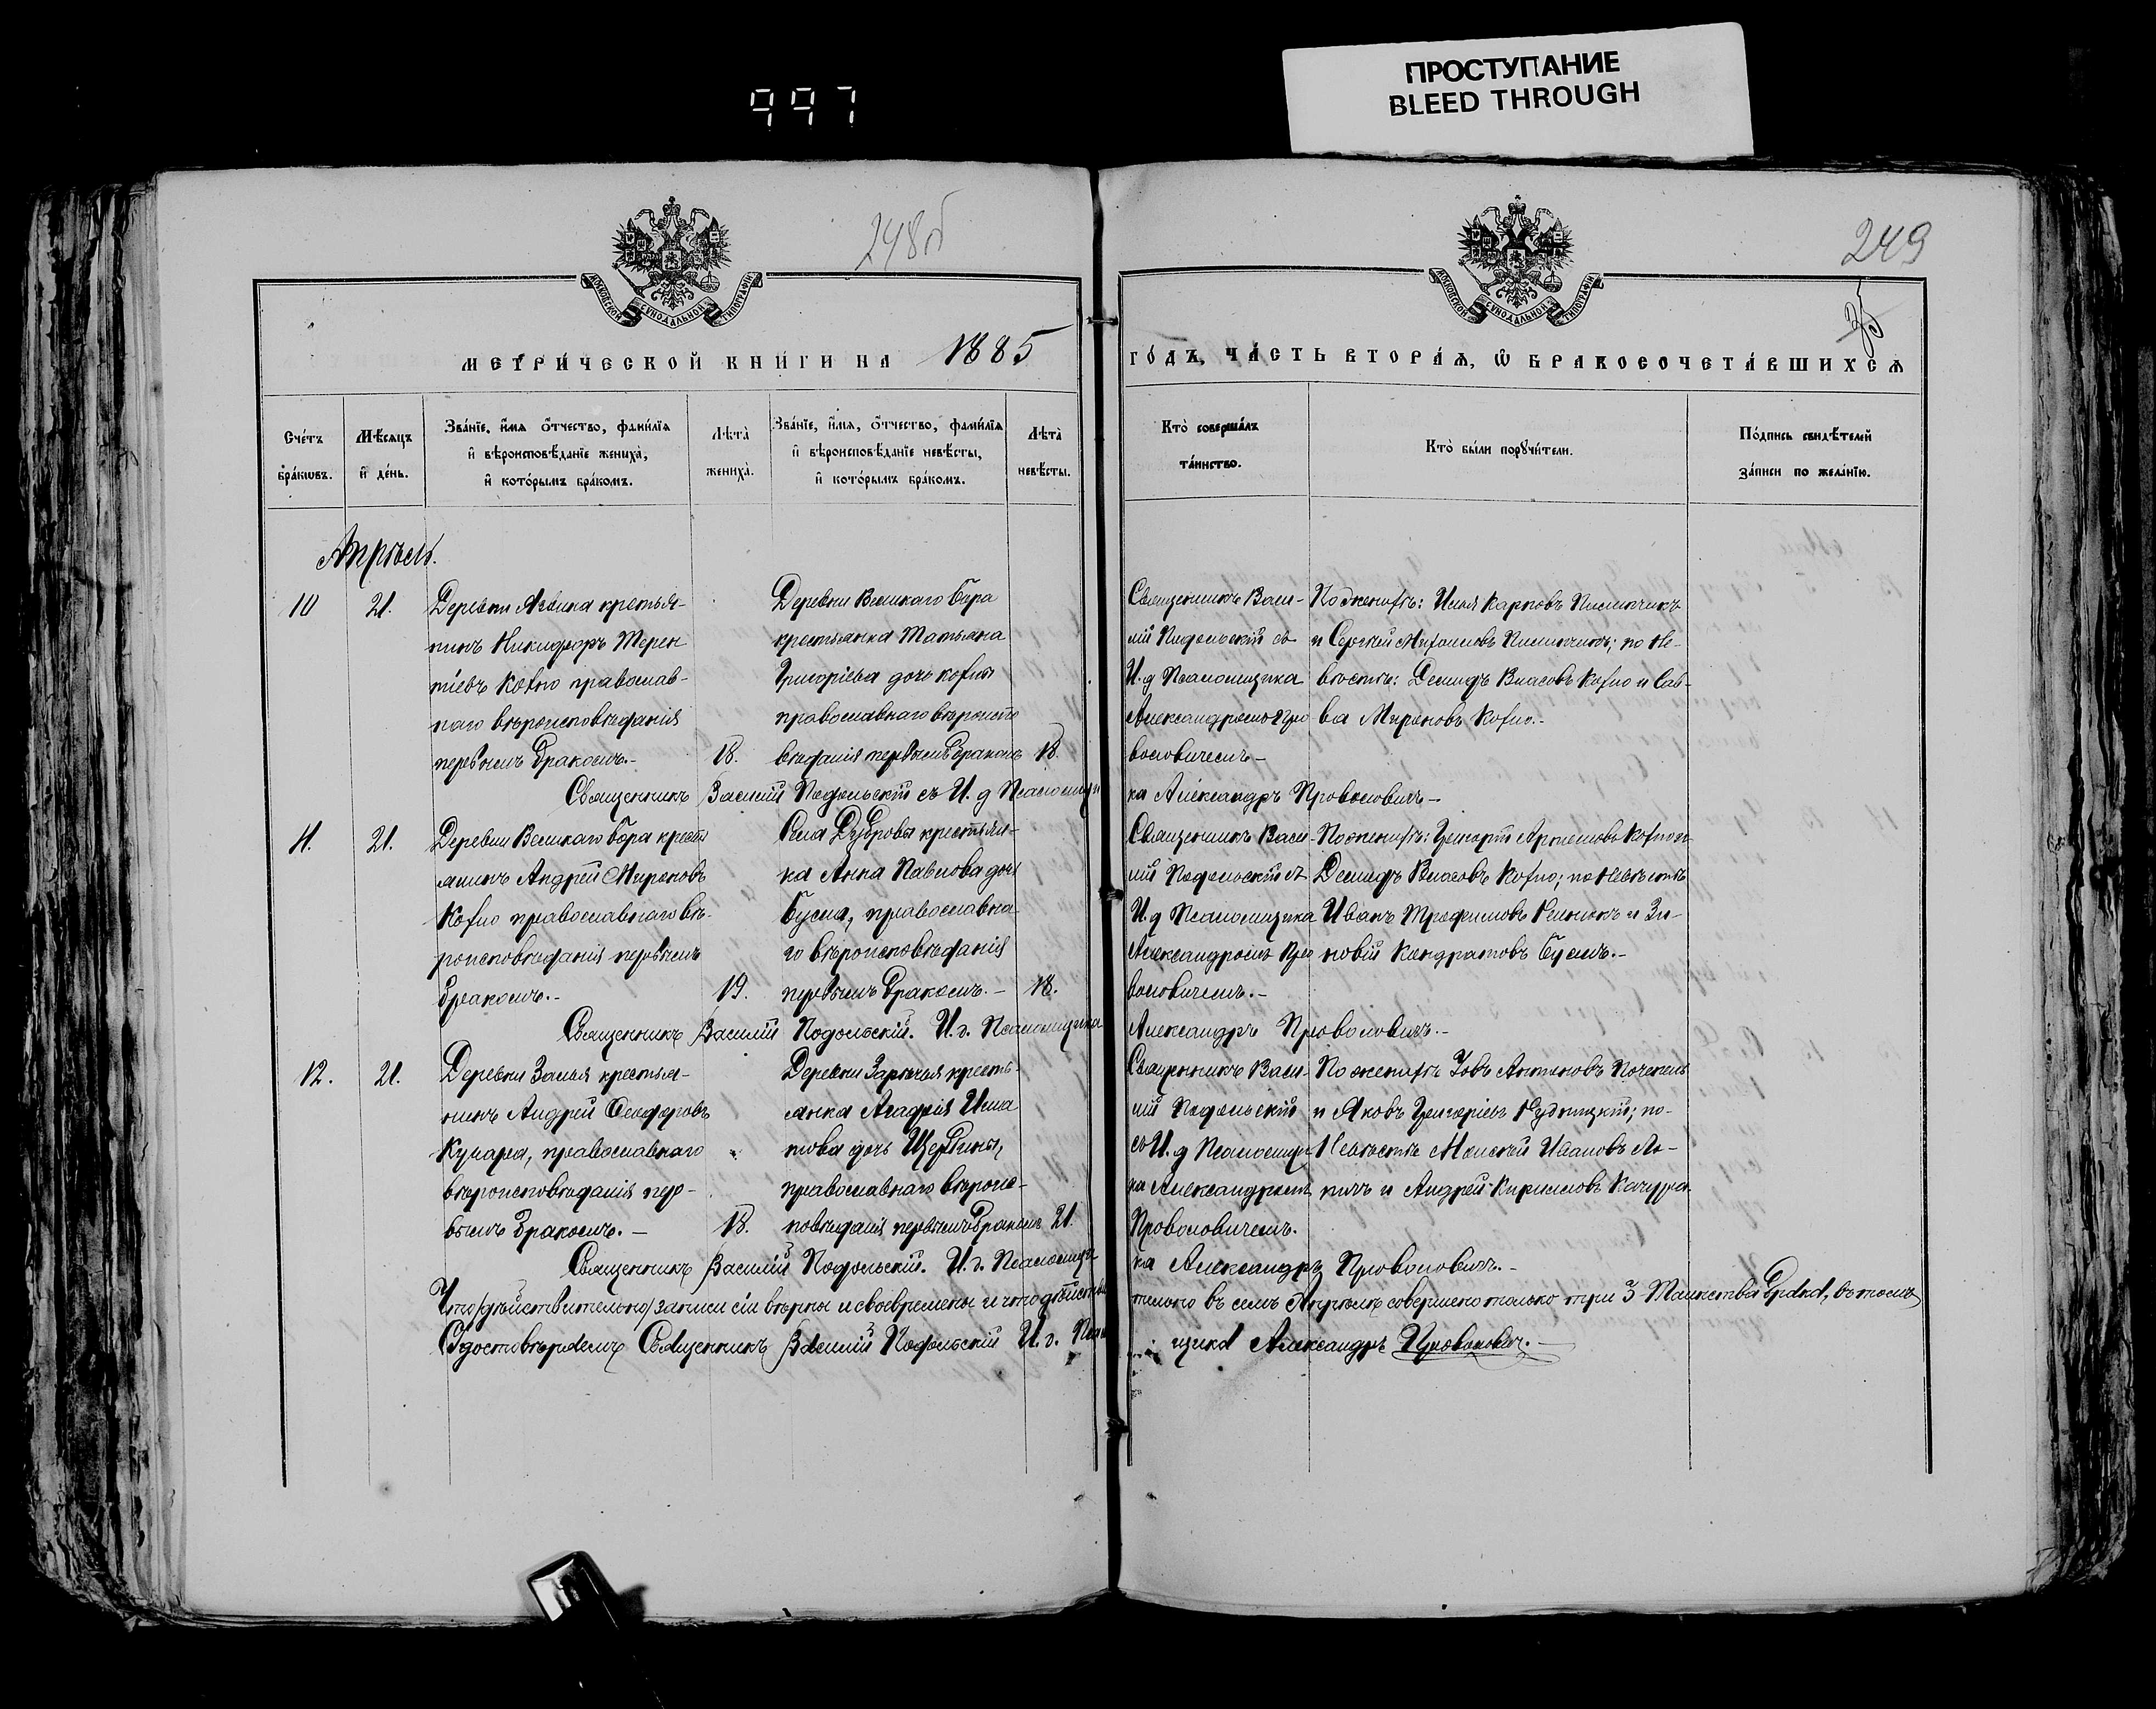 ПРОСТУПАНИЕ
BLEED THROUGH
997
248об
249
МОСКОВСКОЙ СѴНОДАЛЬНОЙ ТИПОГРАФІИ
МОСКОВСКОЙ СѴНОДАЛЬНОЙ ТИПОГРАФІИ
МЕТРИЧЕСКОЙ КНИГИ НА 1885
ГОДЪ, ЧАСТЬ ВТОРАѦ, Ѡ БРАКОСОЧЕТАВШИХСѦ
Счетъ браковъ.
Мѣсяцъ и день.
Званіе, имя отчество, фамилія
и вѣроисповѣданіе жениха,
и которымъ бракомъ.
Лѣта жениха.
Званіе, имя, отчество, фамилія
и вѣроисповѣданіе невѣсты,
и которымъ бракомъ.
Лѣта невѣсты.
Кто совершалъ
таинство.
Кто были поручители.
Подпись свидѣтелей
записи по желанію.
Апрѣль.
10 21.
Деревни крестья-
нинъ Никифоръ Терен
тіевъ Кохно православ-
наго вѣроисповѣданія
первымъ бракомъ.-
18.
Деревни Великаго Бора
крестьянка Татьяна
Григоріева дочь Кохно
православнаго вѣроиспо
вѣданія первымъ бракомъ
18.
Священникъ Васи-
лій Подольскій съ
И. д Псаломщика
Александромъ Про
воловичемъ-
По женихѣ: Илья Карповъ
и Сергѣй ; по Не-
вѣстѣ: Демидъ Власовъ Кохно и Сав-
ва Мироновъ Кохно.-
Священникъ Василій Подольскій съ И. д Псаломщи
ка Александръ Проволовичъ-
11. 21.
Деревни Великаго Бора кресть
янинъ Андрей Мироновъ
Кохно православнаго вѣ-
роисповѣданія первымъ
бракомъ.-
19.
Села Дуброва крестьян-
ка Анна Павлова дочь
Бусла, православна-
го вѣроисповѣданія
первымъ бракомъ.-
18.
Священникъ Васи-
лій Подольскій съ
И. д Псаломщика
Александромъ Про
воловичемъ.-
По женихѣ: Григорій Кохно и
Демидъ Власовъ Кохно; по Невѣстѣ
Иванъ Трофимовъ и Зи-
новій Кондратовъ Буслъ.-
Священникъ Василій Подольскій. И. д. Псаломщика
Александръ Проволовичъ.-
12. 21.
Деревни крестья-
нинъ Андрей Ѳеодоровъ
православнаго
вѣроисповѣданія пер-
вымъ бракомъ.-
18.
Деревни Зарѣчья кресть-
янка Агафія
дочь
православнаго вѣроис-
повѣданія первымъ бракомъ
21.
Священникъ Васи-
лій Подольскій
съ И. д Псаломщи-
ка Александромъ
Проволовичемъ.
По женихѣ Іовъ Антоновъ
и Яковъ Григоріевъ Рудницкій; по-
Невѣстѣ Ивановъ
и Андрей Кириловъ
Священникъ Василій Подольскій. И. д. Псаломщи
ка Александръ Проволовичъ.-
Что/дѣйствительно/записи сіи вѣрны и своевремены и что дѣйстви
тельно въ семъ Апрѣлѣ совершено только три 3 Таинства брака, въ томъ
Удостовѣряемъ Священникъ Василій Подольскій И. д. Псалом
щика Александръ Проволовичъ.-